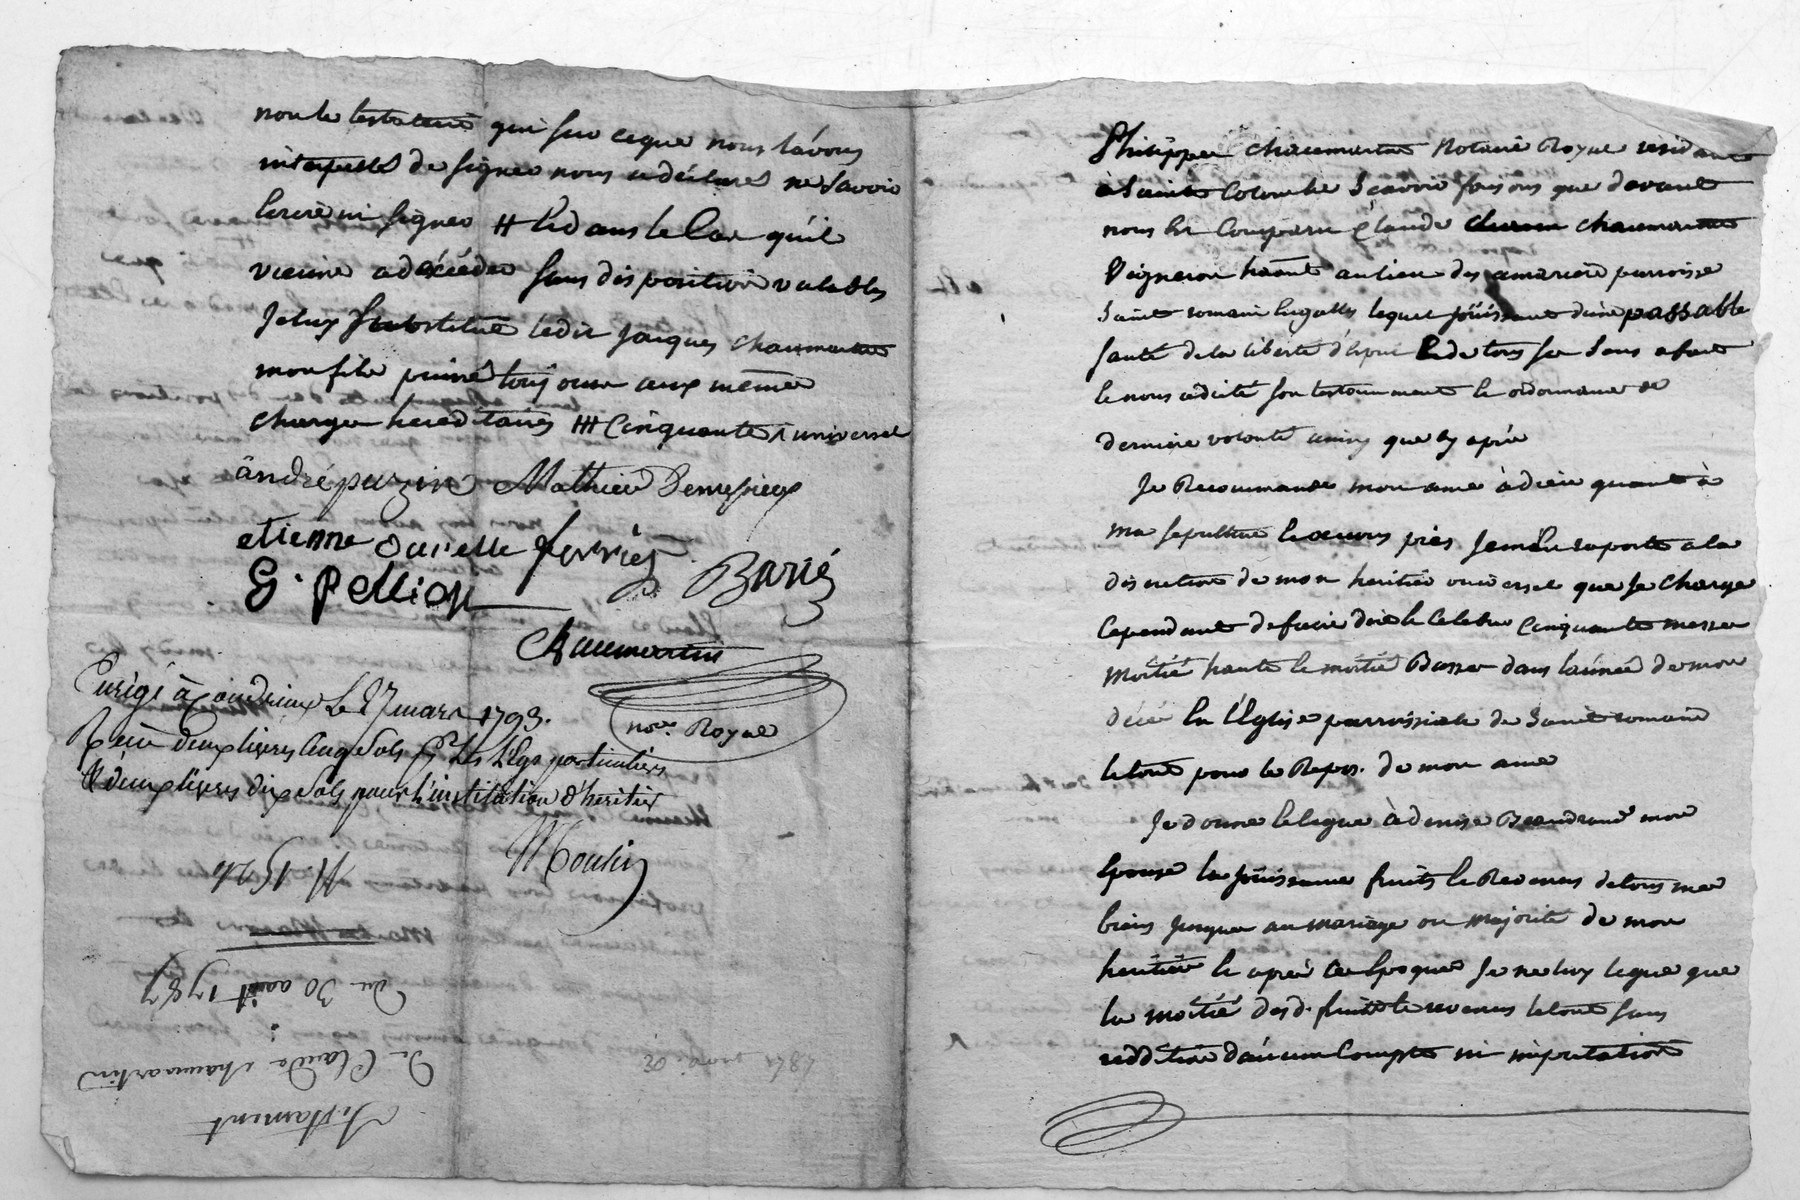 non le testateur qui sur ce que nous l'avons
interpellé de signer nous a déclaré ne savoir
écrire ni signer # & dans le cas qu'il
vienne a déceder sans disposition valables
Je luy substitue ledit Jacques chaumartin
mon fils puiné toujours aux mêmes
charges hereditaires ## cinquante universel
andré puzin Mathieu
etienne ourelle
G. pellion Barié
Chaumartin
nore. Royal
à Condrieux Le 27 mars 1793.
Recu deux livres Cinq sols les Legs particuliers
& deux livres dix sols pour l'institution d'heritier
Moulin
Testament
De Claude chaumartin
du 30 août 1787
Philippe chaumartin Notaire Royal residant
à Sainte Colombe Scavoir faisons que devant
nous fut Comparu Claude chaumartin
Vigneron habt au lieu des parroisse
Saint romain lequel Jouissant d'une passable
santé de la liberté d'esprit & de tous ses Sens a fait
& nous a dicté son testament & ordonnance de
derniere volonté ainsy que cy après
Je Recommande mon ame à dieu quant à
ma sepulture & œuvres pies Je m'en raporte a la
discretion de mon heritier universel que Je charge
Cependant de faire dire & Celebrer Cinquante messes
moitié haute & moitié Basse dans l'année de mon
décé En l'Eglise parroissiale de Saint romain
le tout pour le Repos de mon ame
Je donne & legue à denise mon
Epouse la Jouissance fruits & Revenus de tous mes
biens Jusques au mariage ou majorité de mon
heritier & après cette Epoque Je ne luy legue que
la moitié desd. fruits & revenus le tout sans
reddition d'aucun Compte ni imputation